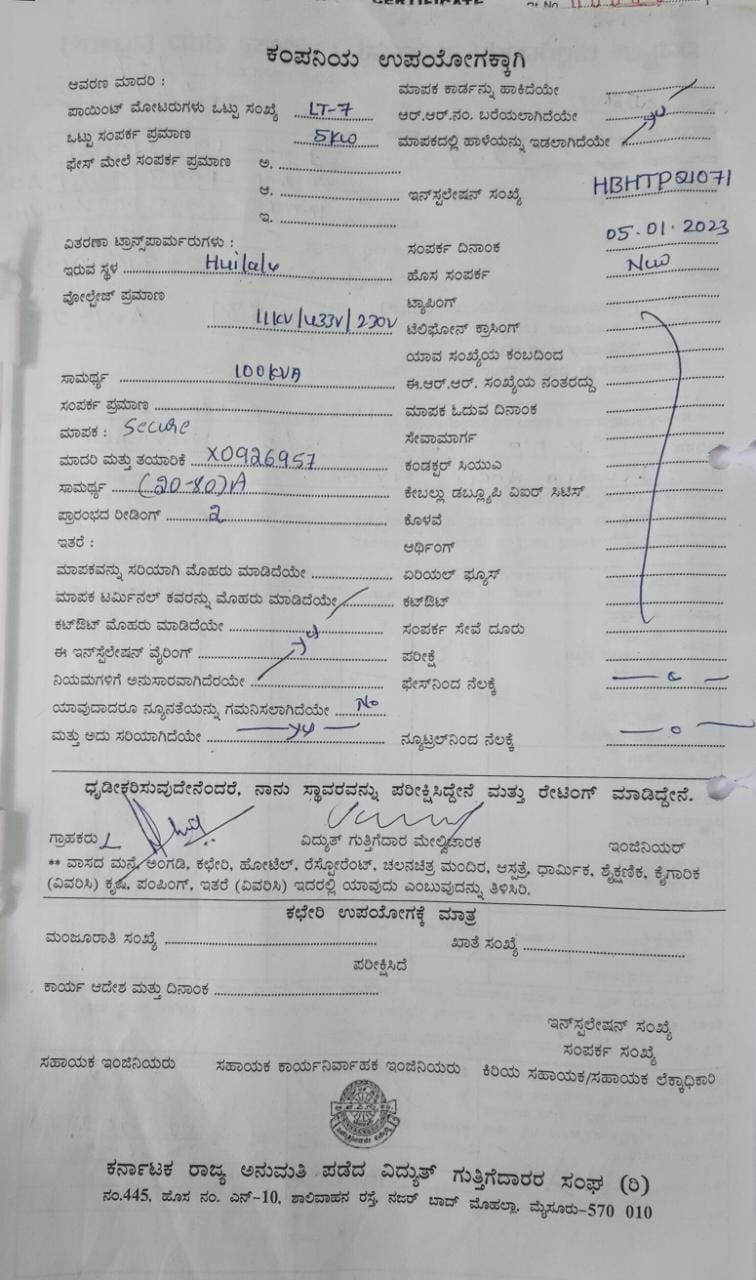 CERTIFICATE
ಕಂಪನಿಯ ಉಪಯೋಗಕ್ಕಾಗಿ
ಆವರಣ ಮಾದರಿ :
ಮಾಪಕ ಕಾರ್ಡನ್ನು ಹಾಕಿದೆಯೇ
ಪಾಯಿಂಟ್ ಮೋಟರುಗಳು ಒಟ್ಟು ಸಂಖ್ಯೆ LT-7 ಆರ್.ಆರ್.ನಂ. ಬರೆಯಲಾಗಿದೆಯೇ
ಒಟ್ಟು ಸಂಪರ್ಕ ಪ್ರಮಾಣ 5KW ಮಾಪಕದಲ್ಲಿ ಹಾಳೆಯನ್ನು ಇಡಲಾಗಿದೆಯೇ
ಫೇಸ್ ಮೇಲೆ ಸಂಪರ್ಕ ಪ್ರಮಾಣ ಅ.
ಆ. ಇನ್‌ಸ್ಟಲೇಷನ್ ಸಂಖ್ಯೆ HBHTP21071
ಇ.
ವಿತರಣಾ ಟ್ರಾನ್ಸ್‌ಪಾರ್ಮರುಗಳು : ಸಂಪರ್ಕ ದಿನಾಂಕ 05.01.2023
ಇರುವ ಸ್ಥಳ ಹೊಸ ಸಂಪರ್ಕ New
ವೋಲ್ಟೇಜ್ ಪ್ರಮಾಣ ಟ್ಯಾಪಿಂಗ್
11KV/433V/230V ಟೆಲಿಫೋನ್ ಕ್ರಾಸಿಂಗ್
ಯಾವ ಸಂಖ್ಯೆಯ ಕಂಬದಿಂದ
ಸಾಮರ್ಥ್ಯ 100KVA ಈ.ಆರ್.ಆರ್. ಸಂಖ್ಯೆಯ ನಂತರದ್ದು
ಸಂಪರ್ಕ ಪ್ರಮಾಣ ಮಾಪಕ ಓದುವ ದಿನಾಂಕ
ಮಾಪಕ : Secure ಸೇವಾಮಾರ್ಗ
ಮಾದರಿ ಮತ್ತು ತಯಾರಿಕೆ X0926957 ಕಂಡಕ್ಟರ್ ಸಿಯುಎ
ಸಾಮರ್ಥ್ಯ (20-80)A ಕೇಬಲ್ಲು ಡಬ್ಲ್ಯೂಪಿ ವಿಐರ್ ಸಿಟಿಸ್
ಪ್ರಾರಂಭದ ರೀಡಿಂಗ್ 2 ಕೊಳವೆ
ಇತರೆ : ಆರ್ಥಿಂಗ್
ಮಾಪಕವನ್ನು ಸರಿಯಾಗಿ ಮೊಹರು ಮಾಡಿದೆಯೇ ಏರಿಯಲ್ ಫ್ಯೂಸ್
ಮಾಪಕ ಟರ್ಮಿನಲ್ ಕವರನ್ನು ಮೊಹರು ಮಾಡಿದೆಯೇ ಕಟ್‌ಔಟ್
ಕಟ್‌ಔಟ್ ಮೊಹರು ಮಾಡಿದೆಯೇ ಸಂಪರ್ಕ ಸೇವೆ ದೂರು
ಈ ಇನ್‌ಸ್ಟೆಲೇಷನ್ ವೈರಿಂಗ್ ಪರೀಕ್ಷೆ
ನಿಯಮಗಳಿಗೆ ಅನುಸಾರವಾಗಿದೆರಯೇ ಫೇಸ್‌ನಿಂದ ನೆಲಕ್ಕೆ
ಯಾವುದಾದರೂ ನ್ಯೂನತೆಯನ್ನು ಗಮನಿಸಲಾಗಿದೆಯೇ No
ಮತ್ತು ಅದು ಸರಿಯಾಗಿದೆಯೇ ನ್ಯೂಟ್ರಲ್‌ನಿಂದ ನೆಲಕ್ಕೆ
ಧೃಡೀಕರಿಸುವುದೇನೆಂದರೆ, ನಾನು ಸ್ಥಾವರವನ್ನು ಪರೀಕ್ಷಿಸಿದ್ದೇನೆ ಮತ್ತು ರೇಟಿಂಗ್ ಮಾಡಿದ್ದೇನೆ.
ಗ್ರಾಹಕರು ವಿದ್ಯುತ್ ಗುತ್ತಿಗೆದಾರ ಮೇಲ್ವಿಚಾರಕ ಇಂಜಿನಿಯರ್
** ವಾಸದ ಮನೆ, ಅಂಗಡಿ, ಕಛೇರಿ, ಹೋಟೆಲ್, ರೆಸ್ಟೋರೆಂಟ್, ಚಲನಚಿತ್ರ ಮಂದಿರ, ಆಸ್ಪತ್ರೆ, ಧಾರ್ಮಿಕ, ಶೈಕ್ಷಣಿಕ, ಕೈಗಾರಿಕ
(ವಿವರಿಸಿ) ಕೃಷಿ, ಪಂಪಿಂಗ್, ಇತರೆ (ವಿವರಿಸಿ) ಇದರಲ್ಲಿ ಯಾವುದು ಎಂಬುವುದನ್ನು ತಿಳಿಸಿರಿ.
ಕಛೇರಿ ಉಪಯೋಗಕ್ಕೆ ಮಾತ್ರ
ಮಂಜೂರಾತಿ ಸಂಖ್ಯೆ ಖಾತೆ ಸಂಖ್ಯೆ
ಪರೀಕ್ಷಿಸಿದೆ
ಕಾರ್ಯ ಆದೇಶ ಮತ್ತು ದಿನಾಂಕ
ಇನ್‌ಸ್ಟಲೇಷನ್ ಸಂಖ್ಯೆ
ಸಂಪರ್ಕ ಸಂಖ್ಯೆ
ಸಹಾಯಕ ಇಂಜಿನಿಯರು ಸಹಾಯಕ ಕಾರ್ಯನಿರ್ವಾಹಕ ಇಂಜಿನಿಯರು ಕಿರಿಯ ಸಹಾಯಕ/ಸಹಾಯಕ ಲೆಕ್ಕಾಧಿಕಾರಿ
ಕರ್ನಾಟಕ ರಾಜ್ಯ ಅನುಮತಿ ಪಡೆದ ವಿದ್ಯುತ್ ಗುತ್ತಿಗೆದಾರರ ಸಂಘ (ರಿ)
ನಂ.445, ಹೊಸ ನಂ. ಎನ್-10, ಶಾಲಿವಾಹನ ರಸ್ತೆ, ನಜರ್ ಬಾದ್ ಮೊಹಲ್ಲಾ, ಮೈಸೂರು-570 010